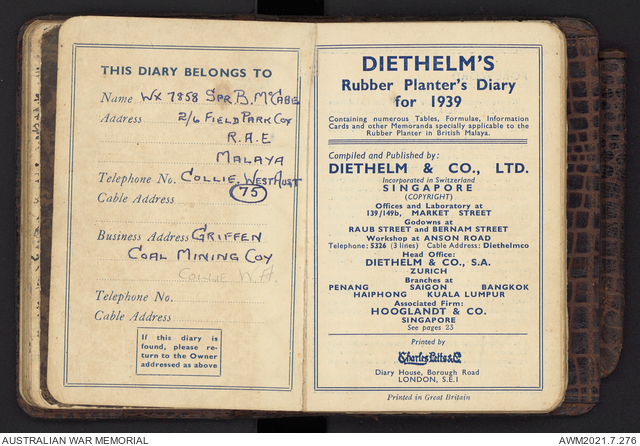 THIS DIARY BELONGS TO
Name WX 7858 SPR. B. McCABE
Address 2/6 FIELD PARK COY
R.A.E
MALAYA
Telephone No. COLLIE. WEST AUST
75
Cable Address
Business Address GRIFFEN
COAL MINING COY
COLLIE W.A.
Telephone No.
Cable Address
If this diary is
found, please re-
turn to the Owner
addressed as above
DIETHELM'S
Rubber Planter's Diary
for 1939
Containing numerous Tables, Formulae, Information
Cards and other Memoranda specially applicable to the
Rubber Planter in British Malaya.
Compiled and Published by:
DIETHELM & CO., LTD.
Incorporated in Switzerland
SINGAPORE
(COPYRIGHT)
Offices and Laboratory at
139/149b, MARKET STREET
Godowns at
RAUB STREET and BERNAM STREET
Workshop at ANSON ROAD
Telephone: 5326 (3 lines) Cable Address: Diethelmco
Head Office:
DIETHELM & CO., S.A.
ZURICH
Branches at
PENANG SAIGON BANGKOK
HAIPHONG KUALA LUMPUR
Associated Firm:
HOOGLANDT & CO.
SINGAPORE
See pages 23
Printed by
Charles Letts & Co
Diary House, Borough Road
LONDON, S.E.1
Printed in Great Britain
AUSTRALIAN WAR MEMORIAL
AWM2021.7.276